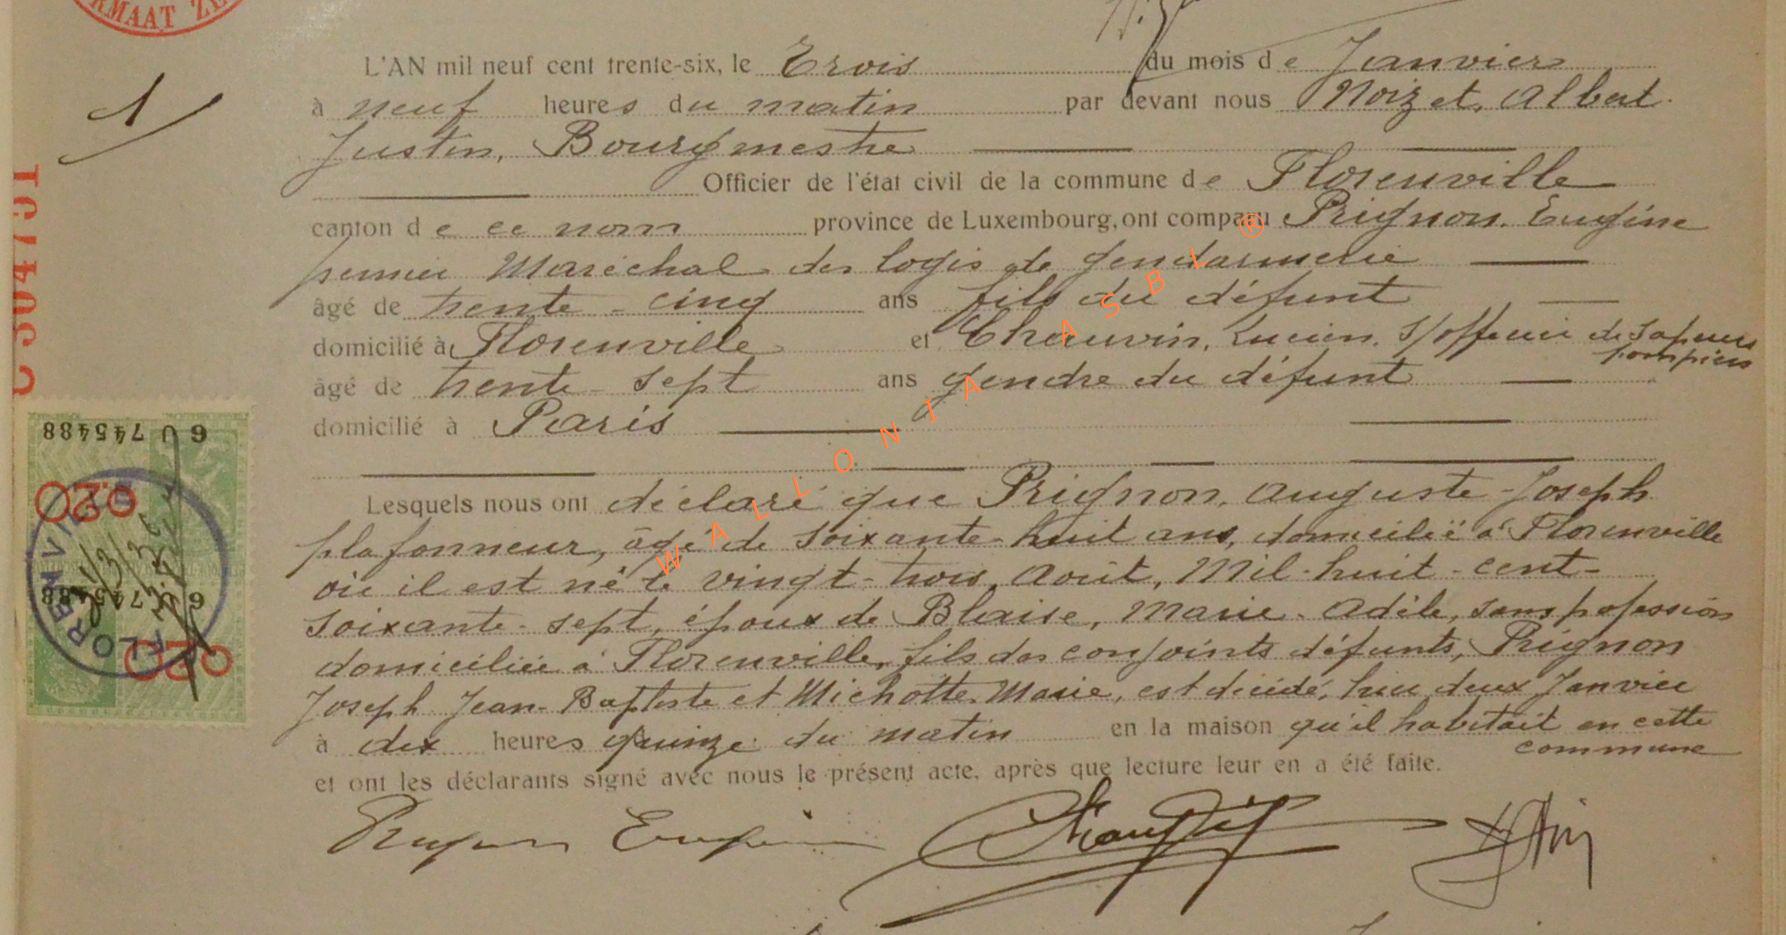 RMAAT ZE
L'AN mil neuf cent trente-six, le Trois du mois de Janvier
1
à neuf heures du matin par devant nous Noizet, Albert
Justin, Bourgmestre
Officier de l'état civil de la commune de Florenville
canton de ce nom province de Luxembourg, ont comparu Prignon, Eugène
premier Maréchal des logis de gendarmerie
âgé de trente-cinq ans fils du défunt
domicilié à Florenville et Chauvin, Lucien, S/officier de Sapeurs
pompiers
âgé de trente-sept ans gendre du défunt
domicilié à Paris
Lesquels nous ont déclaré que Prignon, Auguste-Joseph
plafonneur, âgé de soixante-huit ans, domicilié à Florenville
où il est né le vingt-trois, Août, Mil-huit-cent-
soixante-sept, époux de Blaise, Marie-Adèle, sans profession
domiciliée à Florenville, fils des conjoints défunts, Prignon
Joseph Jean-Baptiste et Michotte Marie, est décédé, hier deux Janvier
à dix heures quinze du matin en la maison qu'il habitait en cette
commune
et ont les déclarants signé avec nous le présent acte, après que lecture leur en a été faite.
Prignon Eugène
WALLONIA ASBL ©
6 U 745488
0.20
FLORENVILLE
6 745488
0.20